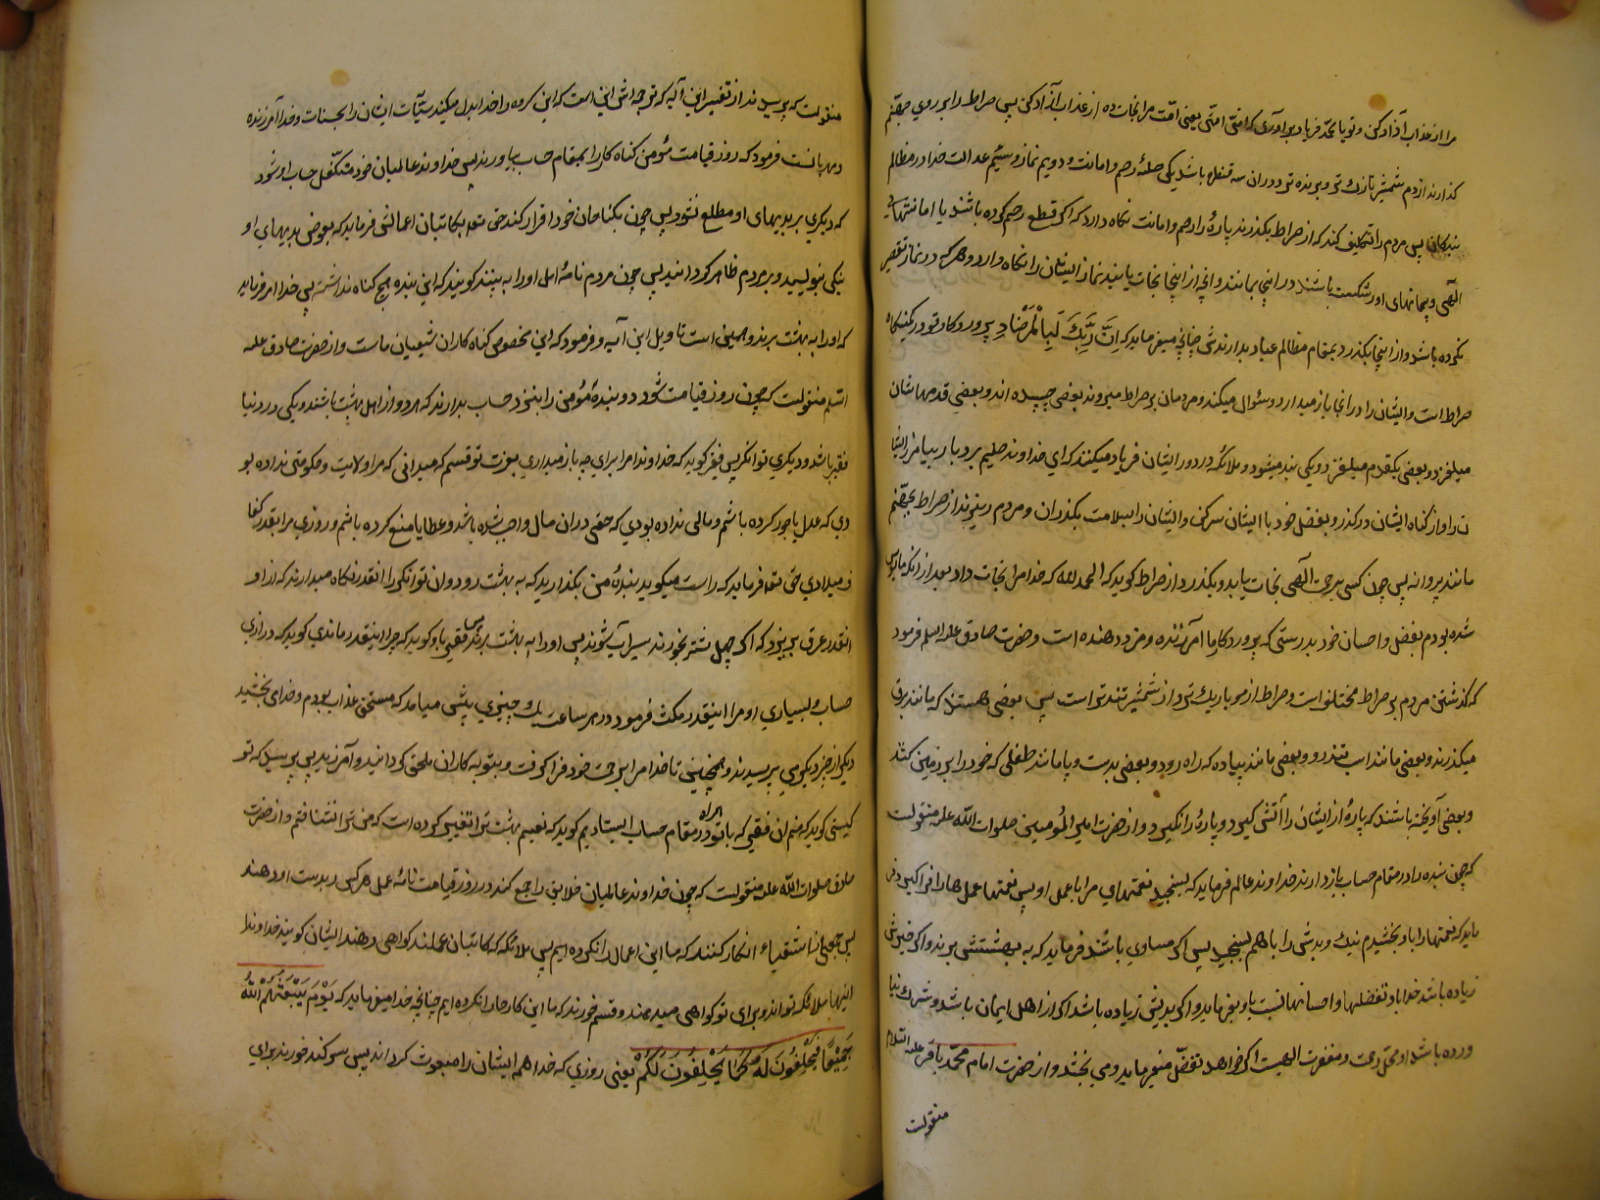 مرا از عذاب آزاد کن و تو یا محمد فریاد برآوری که امتی امتی یعنی امت مرا نجات ده از عذاب آزاد کن پس صراط را بر روی جهنم
گذارند از دم شمشیر نازک تر و برنده تر و در آن سه قنطره باشد یکی صله رحم و امانت و دویم نماز و سیّم عدالت خدا در مظالم
بندکان پس مردم را تکلیف کند که از صراط بگذرند پاره را رحم و امانت نکاه دارد که اگر قطع رحم کرده باشند یا امانتهای
الهی و پیمانهای او شکست باشند در اینجا بمانند و آنچه از اینجا نجات یابند نماز ایشان را نکاه دارد و هر که در نماز تقصیر
کرده باشد و از اینجا بگذرد بمقام مظالم عباد بدارندش چنانچه میفرماید که اِنَّ رَبَّكَ لَبِالْمِرْصَادِ پروردکار تو در کمینکاه
صراط است و ایشان را در آنجا باز میدارد و سئوال میکند و مردمان بر صراط میروند بعضی چسپیده اند و بعضی قدمهاشان
میلغزد و بعضی یکقدم میلغزد و یکی بند میشود و ملائکه در دور ایشان فریاد میکنند که ای خداوند حلیم بردبار بیامرز ایشا
ن را و از کناه ایشان درگذر و بفضل خود با ایشان سر کن و ایشان را بسلامت بگذران و مردم ریزند از صراط بجهنم
مانند پروانه پس چون کسی برحمت الهی نجات یابد و بگذرد از صراط گوید که الحمد لله که خدا مرا نجات داد بعد از آنکه مایوس
شده بودم بفضل و احسان خود بدرستی که پروردکار ما آمرزنده و مزد دهنده است و حضرت صادق علیه السلم فرمود
که گذشتن مردم بر صراط مختلف است و صراط از مو باریک تر و از شمشیر تندتر است پس بعضی هستند که مانند برق
میگذرند و بعضی مانند اسب تندرو و بعضی مانند پیاده که راه رود و بعضی بدست و پا مانند طفلی که خود را بر زمین کشد
و بعضی آویخته باشند که پاره از ایشان را آتش گیرد و پاره را نگیرد و از حضرت امیر المؤمنین صلوات الله علیه منقولست
که چون بنده را در مقام حساب بازدارند خداوند عالم فرماید که بسنجید نعمتهای مرا با عمل او پس نعمتها عمل ها را فرا گیرد فر
ماید که نعمتها را باو بخشیدم نیک و بدش را با هم بسنجید پس اکر مساوی باشد فرماید که به بهشتش برند و اکر خیرش
زیاده باشد خدا باو تفضلها و احسانها نسبت باو بفرماید و اکر بدیش زیاده باشد اکر از اهل ایمان باشد و شرک نیا
ورده باشد او محل رحمت و مغفرت الهیست اکر خواهد تفضل میفرماید و می بخشد و از حضرت امام محمد باقر علیه السلام
منقولست
منقولست که پرسیدند از تفسیر این آیه که ترجمه اش این است که این گروه را خدا بدل میکند سیّئات ایشان را بحسنات و خدا آمرزنده
و مهربانست فرمود که روز قیامت مؤمن کناه کار را بمقام حساب بیاورند پس خداوند عالمیان خود متکفل حساب او شود
که دیگری بر بدیهای او مطلع نشود پس چون بکناهان خود اقرار کند حق تعه بکاتبان اعمالش فرماید که بعوض بدیهای او
نیکی بنویسید و بر مردم ظاهر گردانید پس چون مردم نامه عمل او را به بینند گویند که این بنده هیچ کناه نداشته پس خدا امر فرماید
که او را به بهشت برند و همین است تاویل این آیه و فرمود که این مخصوص کناه کاران شیعیان ماست و از حضرت صادق علیه
السلم منقولست که چون روز قیامت شود دو بنده مؤمن را بنزد حساب بدارند که هر دو از اهل بهشت باشند و یکی در دنیا
فقیر باشد و دیگری توانگر پس فقیر گوید که خداوندا مرا برای چه باز میداری بعزت تو قسم که میدانی که مرا ولایت و حکومتی نداده بو
دی که عدل یا جور کرده باشم و مالی نداده بودی که حقی در آن مال واجب شده باشد و عطا یا منع کرده باشم و روزی مرا بقدر کفا
ف میدادی حق تعه فرماید که راست میگوید بنده من بگذارید که به بهشت رود و آن توانگر را آنقدر نکاه میدارند که از او
آنقدر عرق بریزد که اگر چهل شتر بخورند سیراب شوند پس او را به بهشت برند پس فقیر باو گوید که چرا اینقدر ماندی گوید که درازی
حساب و بسیاری او مرا اینقدر مکث فرمود در هر ساعت یک چیزی پیش میامد که مستحق عذاب بودم و خدای بخشید
دیگر از چیز دیگر می پرسیدند و همچنین تا خدا مرا برحمت خود فرا گرفت و بتوبه کاران ملحق گردانید و آمرزید پس پرسید که تو
کیستی گوید که منم آن فقیر که با تو همراه در مقام حساب ایستادیم گوید که نعیم بهشت ترا تغییر کرده است که من ترا نشناختم و از حضرت
صادق صلوات الله علیه منقولست که چون خداوند عالمیان خلایق را جمع کند در روز قیامت نامه عمل هر کس را بدست او دهند
پس جمعی از اشقیاء انکار کنند که ما این اعمال را نکرده ایم پس ملائکه که کاتبان عملند گواهی دهند ایشان گویند خداوندا
اینها ملائکه تو اند و برای تو گواهی میدهند و قسم خورند که ما این کارها را نکرده ایم چنانچه خدا میفرماید که یَوْمَ یَبْعَثُهُمُ اللّٰهُ
جَمِیْعًا فَیَحْلِفُونَ لَهُ کَمَا یَحْلِفُونَ لَکُمْ یعنی روزی که خدا همه ایشان را مبعوث گرداند پس سوگند خورند برای